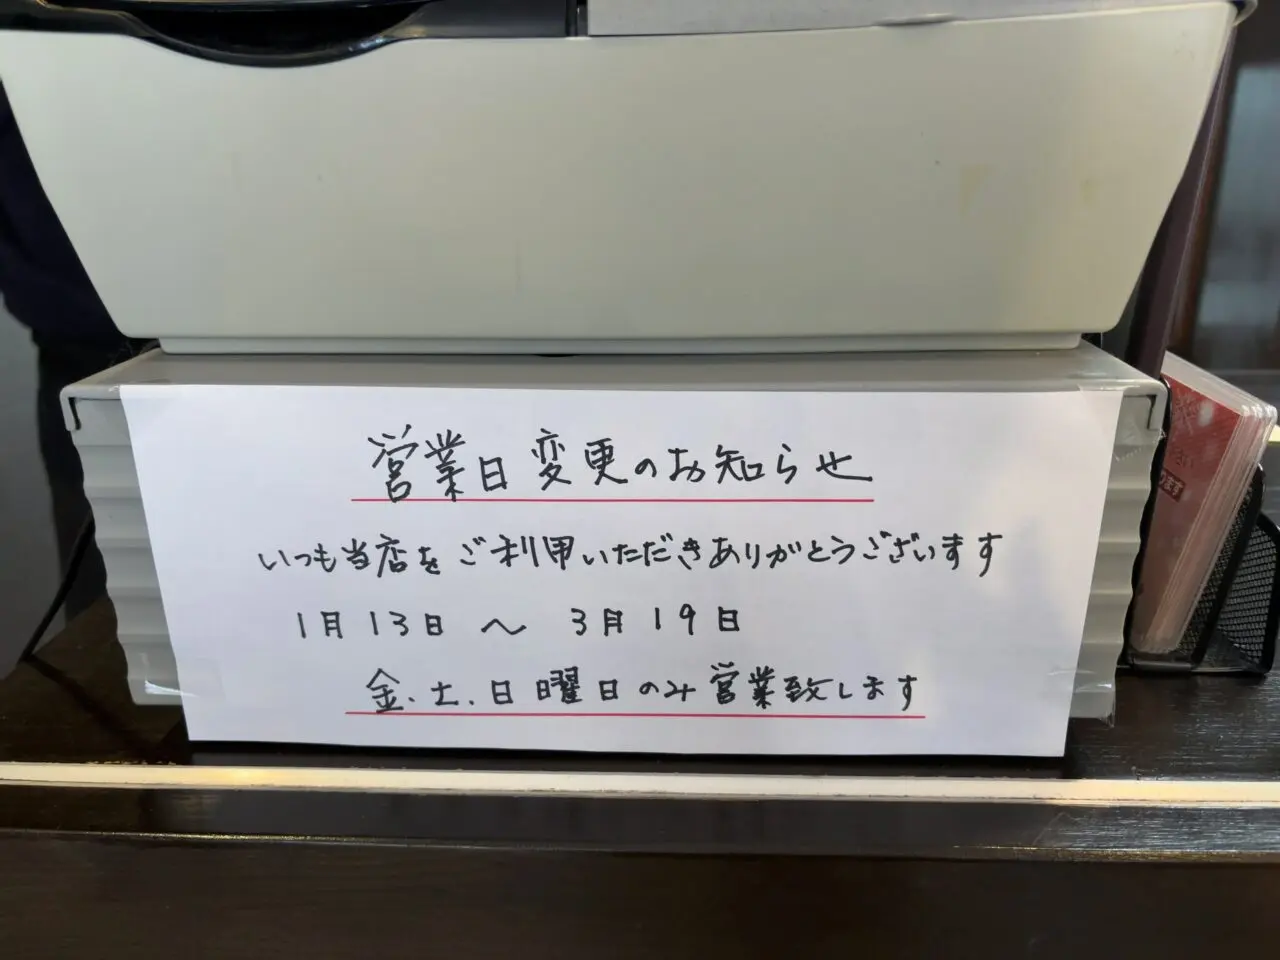 営業日変更のお知らせ
いつも当店をご利用いただきありがとうございます
1月13日 〜 3月19日
金.土.日曜日のみ営業致します
ります